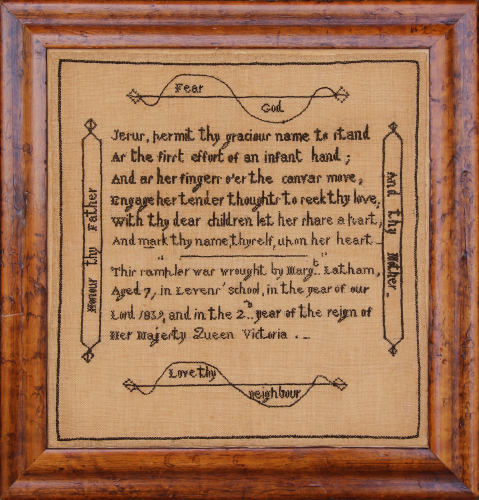 Fear
God
Honour thy Father
And thy Mother.
Jesus, permit thy gracious name to stand
As the first effort of an infant hand;
And as her fingers o'er the canvas move,
Engage her tender thoughts to seek thy love,
With thy dear children let her share a part,
And mark thy name thyself, upon her heart
This sampler was wrought by Margt.. Latham,
Aged 7, in Levens' school, in the year of our
Lord 1839, and in the 2..D year of the reign of
Her Majesty Queen Victoria . _
Love thy
neighbour